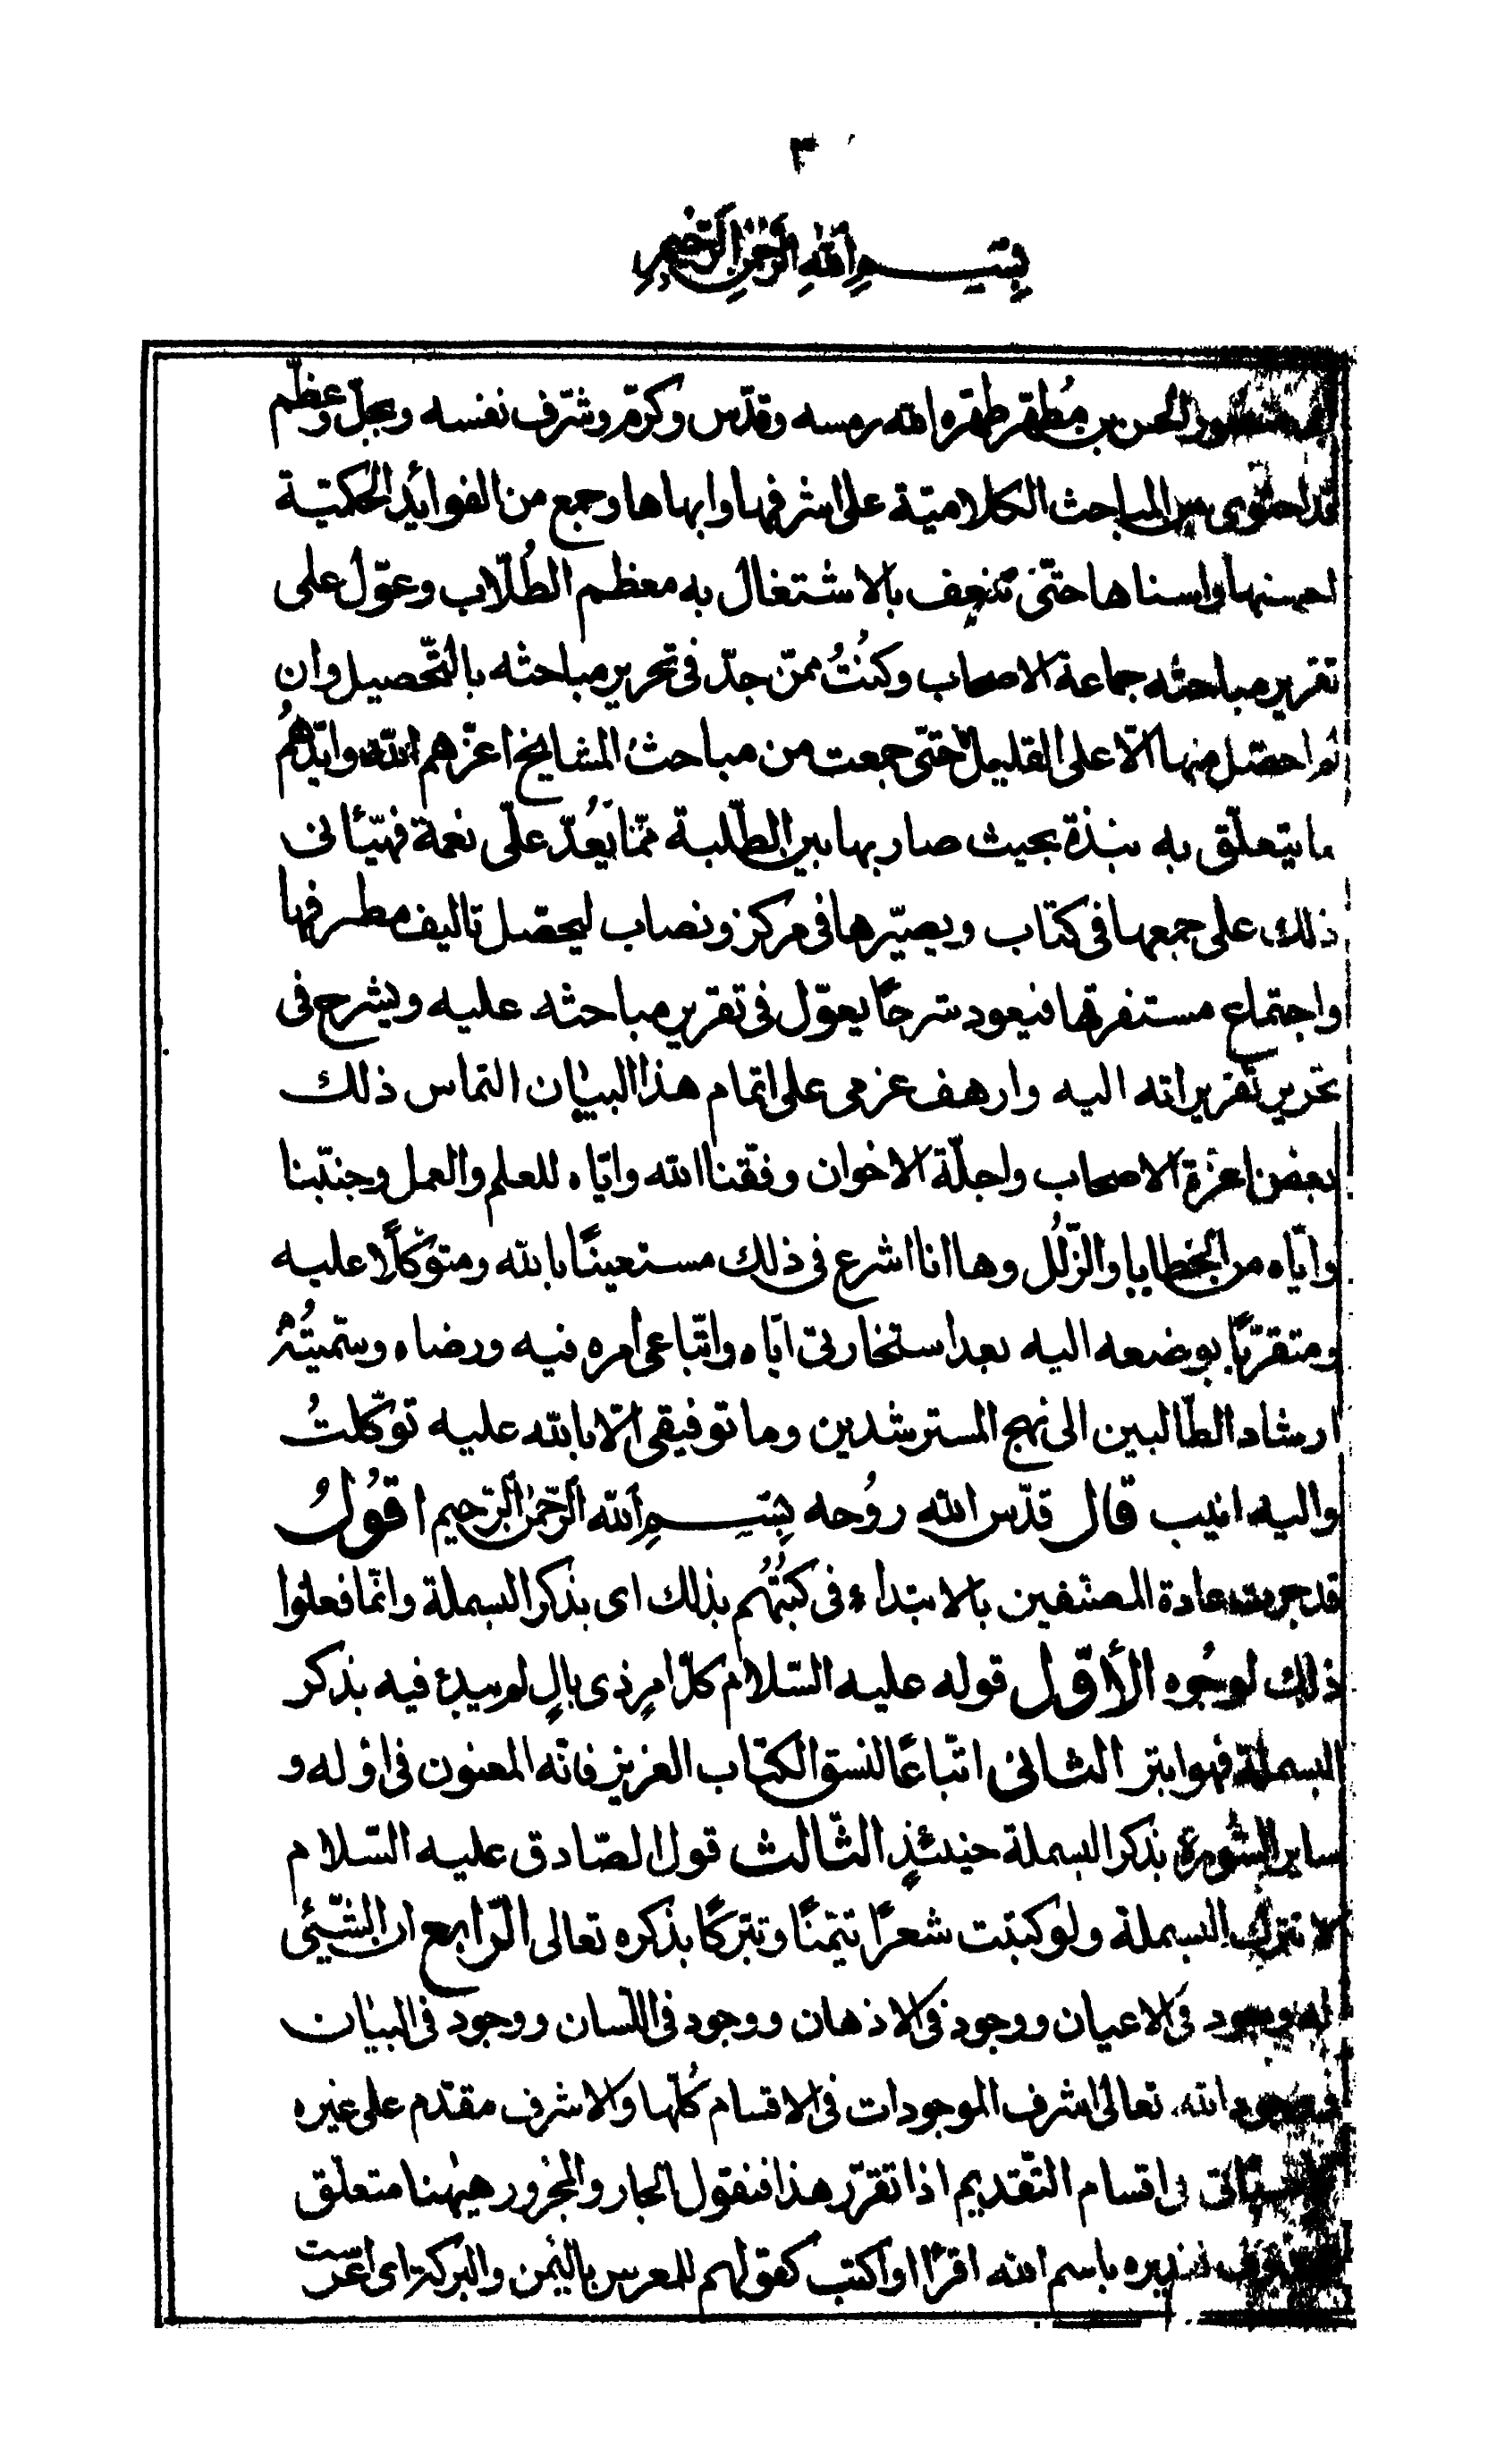 ٣
بسم الله الرحمن الرحيم
الحسن بن مُطهّر طهّر الله رمسه وقدّس وكرّم وشرّف نفسه وبجلّ وعظّم
قد احتوى من المباحث الكلاميّة على اشرفها وابهاها وجمع من الفوايد الحكميّة
احسنها واسناها حتّى شعف بالاشتغال به معظم الطُلّاب وعوّل على
تقرير مباحثه جماعة الاصحاب وكنتُ ممّن جدّ فى تحرير مباحثه بالتّحصيل وان
لم احصّل منها الّا على القليل حتّى جمعت من مباحث المشايخ اعزّهم الله وايّدهُم
ما يتعلّق به نبذة بحيث صار بها بين الطّلبة ممّا يُعدّ علىّ نعمة فهيّأنى
ذلك على جمعها فى كتاب ويصيّرها فى مركز ونصاب ليحصّل تاليف مطرفها
واجتماع مستفرقها فيعود شرحًا يعوّل فى تقرير مباحثه عليه ويشرح فى
تحرير تقريراته اليه وارهف عزمى على اتمام هذا البيان التماس ذلك
بعض اعزة الاصحاب واجلّة الاخوان وفّقنا الله وايّاه للعلم والعمل وجنّبنا
وايّاه من الخطايا والزّلل وها انا اشرع فى ذلك مستعينًا بالله ومتوكّلًا عليه
ومتقرّبًا بوضعه اليه بعد استخارتى ايّاه واتّباعى امره فيه ورضاه وسمّيتُه
ارشاد الطّالبين الى نهج المسترشدين وما توفيقى الّا بالله عليه توكّلتُ
واليه انيب قال قدّس الله روُحه بسم الله الرّحمن الرّحيم اقُولُ
قد جرت عادة المصنّفين بالابتداء فى كتبُهُم بذلك اى بذكر البسملة وانّما فعلوا
ذلك لوجُوه الأوّل قوله عليه السّلام كلّ امرٍ ذى بالٍ لم يبدء فيه بذكر
البسملة فهو ابتر الثانى اتّباعًا لنسق الكتاب العزيز فانّه المعنون فى اوّله و
ساير السّورة بذكر البسملة حينئذٍ الثّالث قول الصّادق عليه السّلام
لا تترك البسملة ولو كتبت شعرًا تيمّنًا وتبرّكًا بذكره تعالى الرّابع ان الشّيئى
له وجود فى الاعيان ووجود فى الاذهان ووجود فى اللّسان ووجود فى البيان
فوجود الله تعالى اشرف الموجودات فى الاقسام كُلّها والاشرف مقدّم على غيره
سيأتى فى اقسام التّقديم اذا تقرّر هذا فنقول الجار والمجرور هيهُنا متعلّق
تقديره باسم الله اقرأ او اكتب كقولهم للمعرس باليُمن والبركة اى اعرست